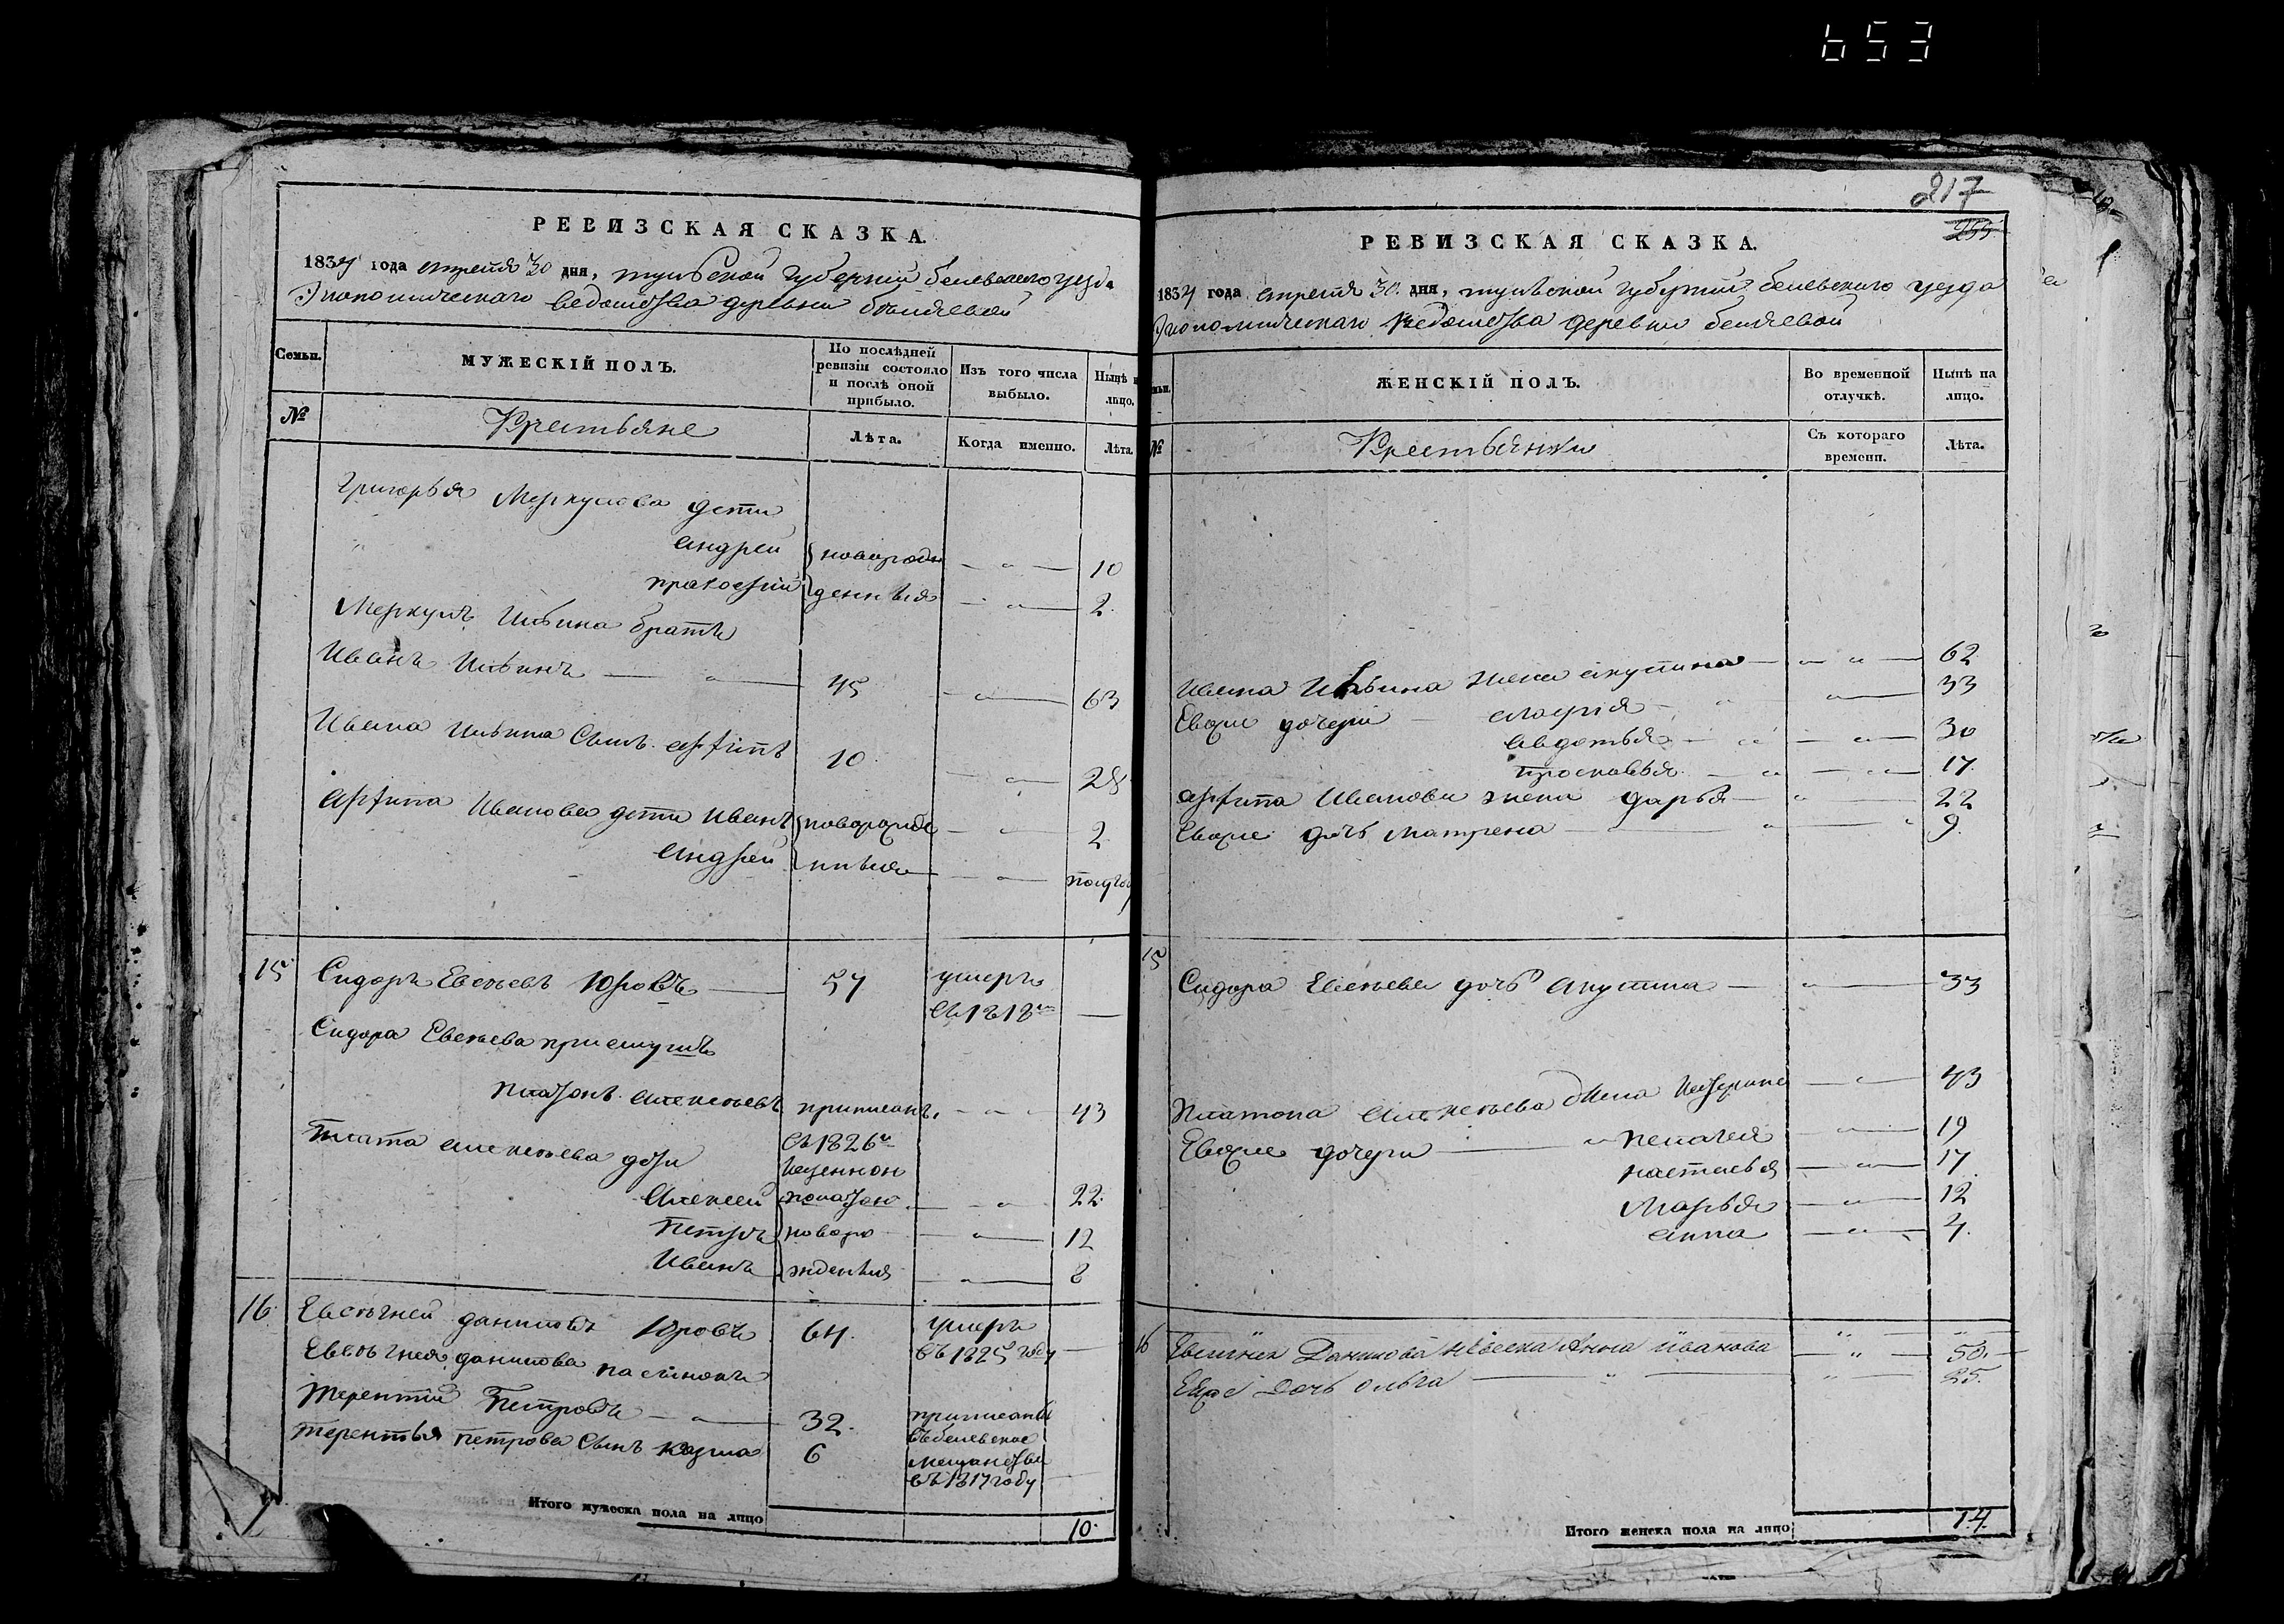 653
РЕВИЗСКАЯ СКАЗКА.
1834 года апреля 30 дня, тульской губернии белевского уезда
Экономическаго ведомства деревни беляевой
Семьи. МУЖЕСКІЙ ПОЛЪ. По послѣдней ревизіи состояло и послѣ оной прибыло. Изъ того числа выбыло. Нынѣ на лицо.
№ Крестьяне Лѣта. Когда именно. Лѣта.
Григорья Меркулова дети
андрей новорож 10
прокофий денныя 2.
Меркула Ильина братъ
Иванъ Ильинъ 45 63
Ивана Ильина Сынъ архипъ 10. 28
архипа Иванова дети Иванъ новорожде 2
андрей нныя полгод
15 Сидоръ Евсеевъ Юровъ 57 умеръ
въ 1818м
Сидора Евсеева приемушъ
платонъ алексеевъ приписанъ 43
въ 1826м
платона алексеева дети
Алексей 22
Петръ новоро 12
Иванъ жденныя 8
16. Евстигней даниловъ Юровъ 64. умеръ
въ 1825 году
Евстигнея данилова пасынокъ
терентий Петровъ 32. приписаны
въ белевское
терентья петрова Сынъ козма 6 мещанство
въ 1817 году
Итого мужеска пола на лицо 10.
217
255
РЕВИЗСКАЯ СКАЗКА.
1834 года апреля 30. дня, тульской губернии белевского уезда
Экономическаго ведомства деревни беляевой
ЖЕНСКІЙ ПОЛЪ. Во временной отлучкѣ. Нынѣ на лицо.
№ Крестьянки Съ котораго времени. Лѣта.
Ивана Ильина жена акулина 62
Евоже дочери 33
авдотья 30
просковья 17.
архипа Иванова жена дарья 22
Евоже дочь матрена 9.
15 Сидора Евсеева дочь акулина 33
Платона алексеева жена 43
Евоже дочери пелагея 19
настасья 17
Марья 12
анна 4.
16 Евстигнея Данилова невеска Анна Иванова 50.
Ея дочь ольга 25.
Итого женска пола на лицо 14.